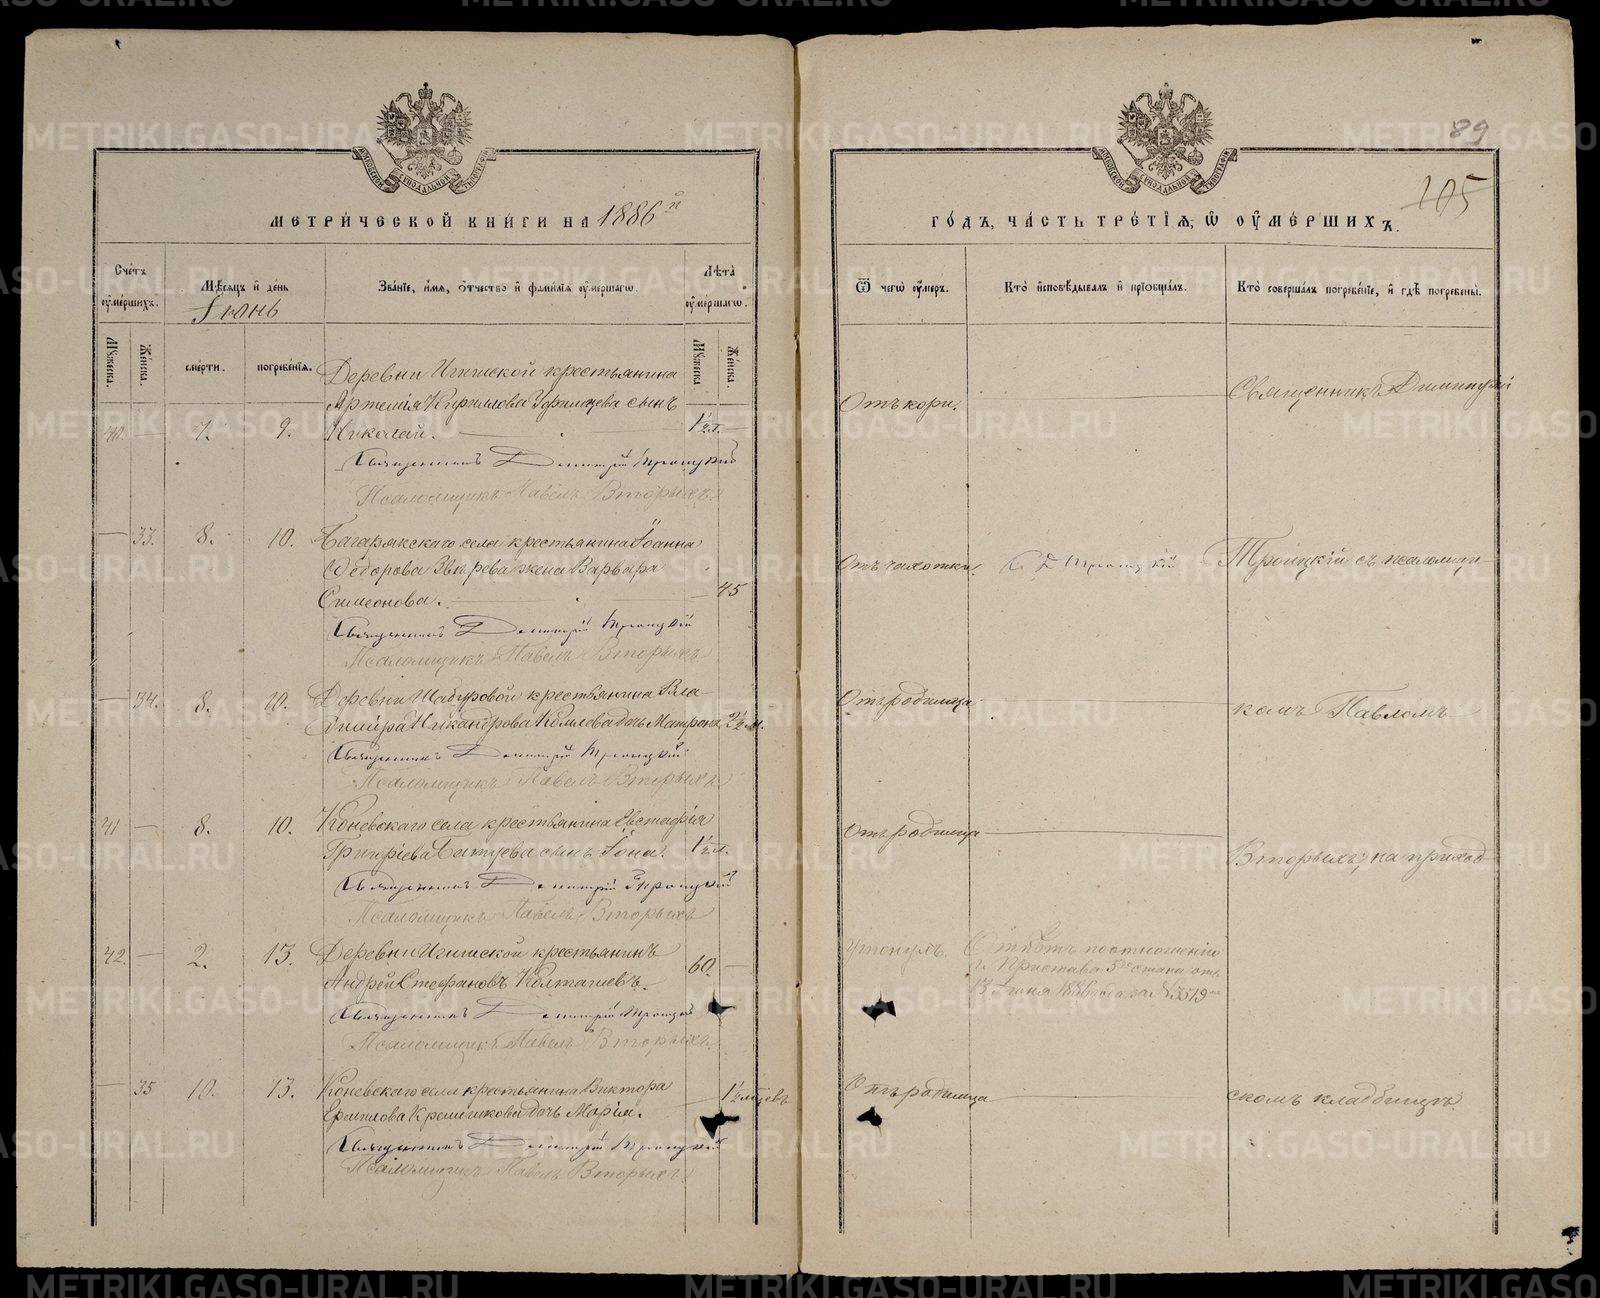 МЕТРИЧЕСКОЙ КНИГИ НА 1886й
Счетъ умершихъ.
Мѣсяцъ и день
Іюнь
Званіе, имя, отчество и фамилія умершаго.
Лѣта умершаго.
Мужеска.
Женска.
смерти.
погребенія.
Мужеска
Женска.
Деревни Игишской крестьянина
Артемія Кириллова сынъ
40. — 7. 9. Николай. 1½ г. —
Священникъ Димитрій Троицкій
Псаломщикъ Павелъ Вторыхъ.
— 33. 8. 10. Багарякскаго села крестьянина Іоанна
Ѳедорова Звѣрева жена Варвара
Симеонова. — 45
Священникъ Димитрій Троицкій
Псаломщикъ Павелъ Вторыхъ
— 34. 8. 10. Деревни Шабуровой крестьянина Вла-
диміра Никандрова Комлева дочь Матрона 2½ м.
Священникъ Димитрій Троицкій
Псаломщикъ Павелъ Вторыхъ
41 — 8. 10. Коневскаго села крестьянина Евстафія
Григоріева сынъ Іона. 1½ г.
Священникъ Димитрій Троицкій
Псаломщикъ Павелъ Вторыхъ
42. — 2. 13. Деревни Игишской крестьянинъ
Андрей Стефановъ 60. —
Священникъ Димитрій Троицкій
Псаломщикъ Павелъ Вторыхъ.
— 35 10. 13. Коневскаго села крестьянина Виктора
Ермилова дочь Марія. 1½ мѣсяцевъ
Священникъ Димитрій Троицкій
Псаломщикъ Павелъ Вторыхъ
89
105
ГОДЪ, ЧАСТЬ ТРЕТІЯ, Ѿ УМЕРШИХЪ.
Ѿ чего умеръ.
Кто исповѣдывалъ и пріобщалъ.
Кто совершалъ погребеніе, и гдѣ погребены.
Отъ кори.
Священникъ Димитрій
Отъ чахотки.
С. Д. Троицкій
Троицкій съ псаломщи-
Отъ родимца
комъ Павломъ
Отъ родимца
Вторыхъ, на приход-
Утонулъ.
по отношенію
г. Пристава 5го стана отъ
13 Іюня 1886 года за № 3519
Отъ родимца
скомъ кладбищѣ.
METRIKI.GASO-URAL.RU